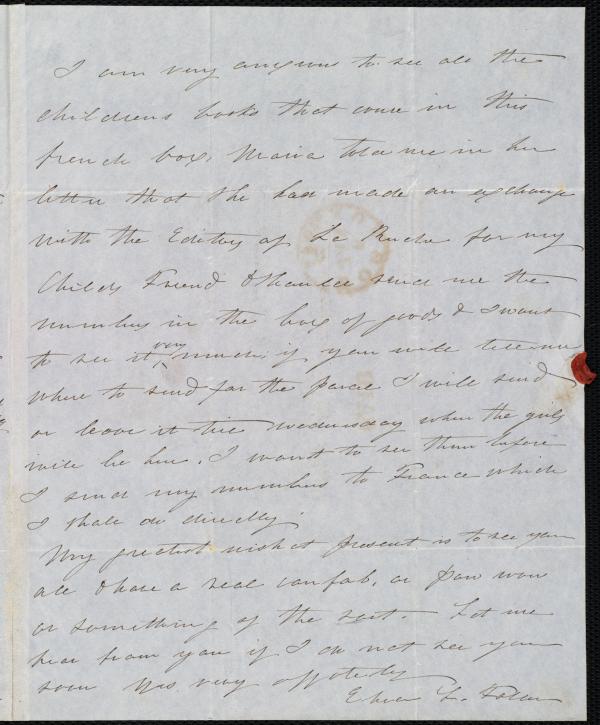 I am very anxious to see all the
childrens books that come in this
french box. Maria told me in her
letter that she had made an exchange
with the Editors of La Ruche for my
Childs Friend & should send me the
numbers in the box of goods & I want
to see it very much; if you will tell me
where to send for the parcel I will send
or leave it till Wednesday when the girls
will be here. I want to see them before
I send my numbers to France which
I shall do directly.
My greatest wish at present is to see you
all & have a real confab, or pow wow
or something of the sort. Let me
hear from you if I do not see you
soon Yrs very affctely
Eliza L. Follen